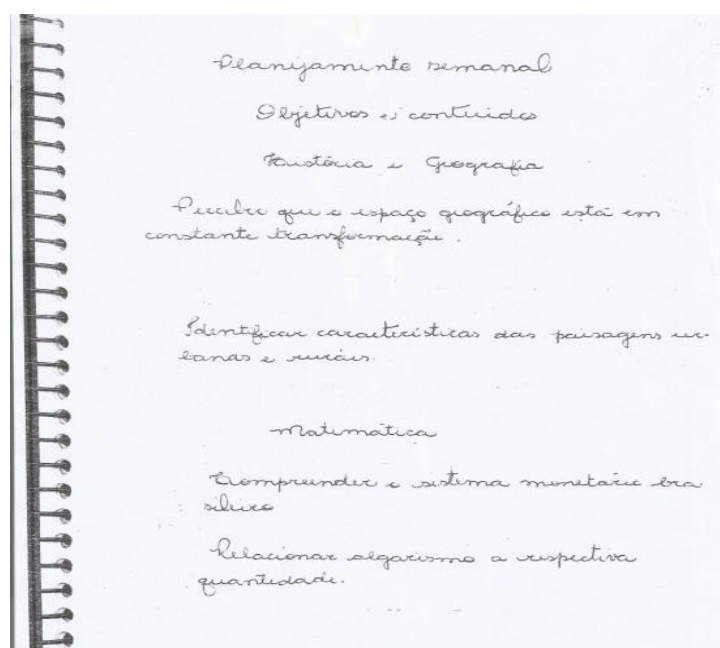 Planejamento semanal
Objetivos e conteúdos
História e Geografia
Perceber que o espaço geográfico está em
constante transformação.
Identificar características das paisagens ur-
banas e rurais.
Matemática
Compreender o sistema monetário bra
sileiro
Relacionar algarismo a respectiva
quantidade.